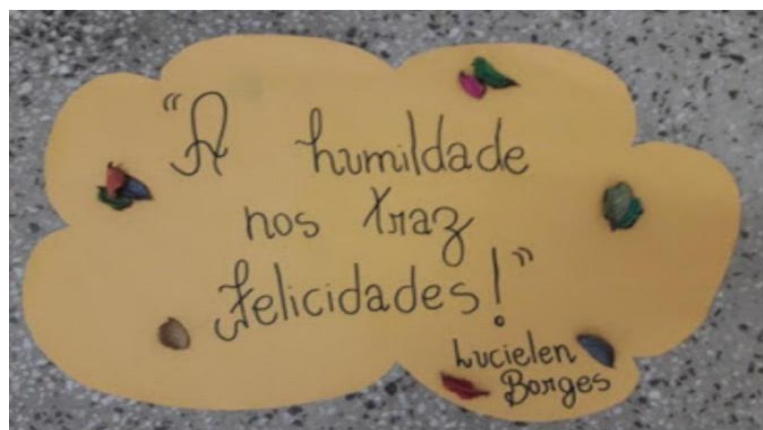 "A humildade
nos traz
felicidades!"
Lucielen
Borges